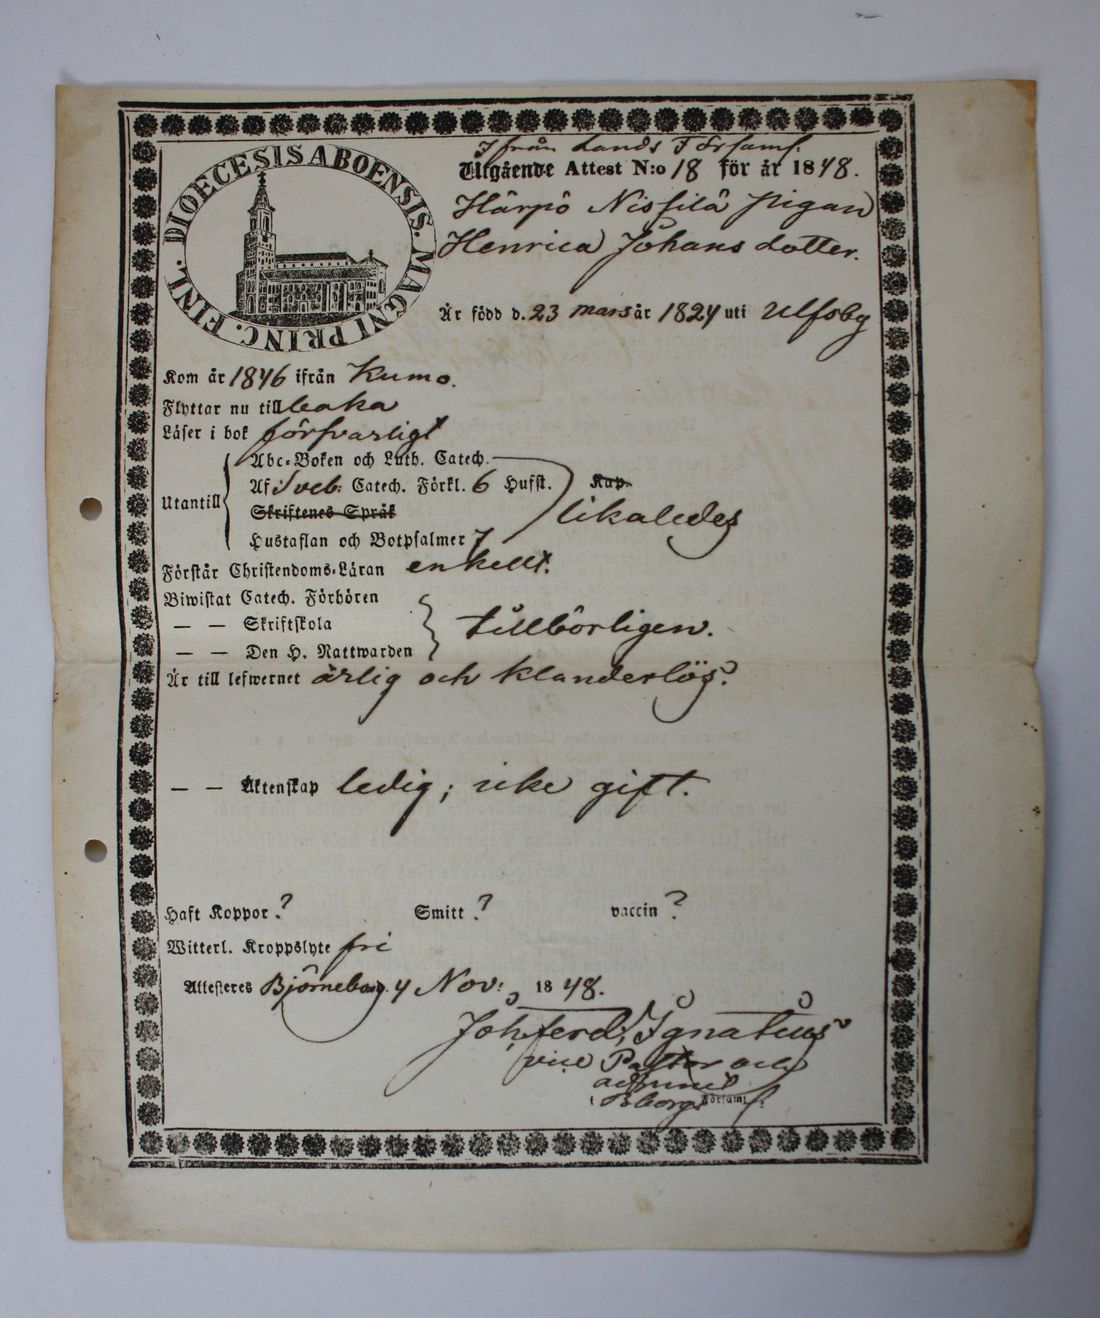 DIOECESIS ABOENSIS. MAGNI PRINC. FINL.
Ifrån Lands Församl.
Utgående Attest N:o 18 för år 1848.
Härpö Nissilä pigan
Henrica Johans dotter.
Är född d. 23 mars år 1824 uti Ulfsby
Kom år 1846 ifrån Kumo.
Flyttar nu till baka
Läser i bok försvarligt
Abc-Boken och Luth. Catech.
Utantill Af Sveb. Catech. Förkl. 6 Hufst. Kap. likaledes
Skriftenes Språk
Hustaflan och Botpsalmer 7
Förstår Christendoms-Läran enkelt.
Biwistat Catech. Förhören
— — Skriftskola tillbörligen.
— — Den H. Nattwarden
Är till lefwernet ärlig och klanderlös.
— — Äktenskap ledig; icke gift.
Haft Koppor ? Smitt ? vaccin ?
Witterl. Kroppslyte fri
Attesteres Björneborg d. 4 Nov: 1848.
Joh. Ferd. Ignatius
vice Pastor och
Bborgs Församl.